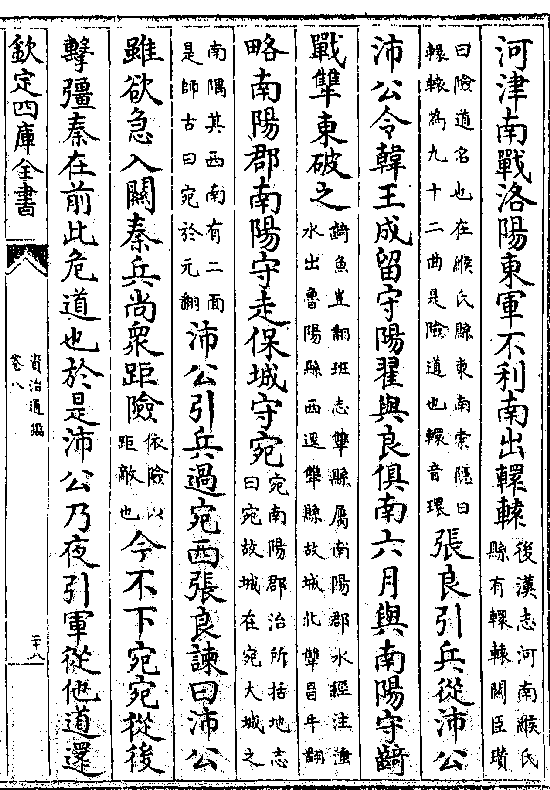 河津南戰洛陽東軍不利南出轘轅後漢志河南緱氏縣有轘轅關臣瓚
曰險道名也在緱氏縣東南索隱曰轘轅為九十二曲是險道也轘音環張良引兵從沛公
沛公令韓王成留守陽翟與良俱南六月與南陽守齮
戰犨東破之齮魚豈翻班志犨縣屬南陽郡水經注滍水出魯陽縣西逕犨縣故城北犨昌牛翻
略南陽郡南陽守走保城守宛宛南陽郡治所括地志曰宛故城在宛大城之
南隅其西南有二面是師古曰宛於元翻沛公引兵過宛西張良諫曰沛公
雖欲急入關秦兵尚衆距險依險以距敵也今不下宛宛從後
擊彊秦在前此危道也於是沛公乃夜引軍從他道還
欽定四庫全書
資治通鑑
卷八
二十八